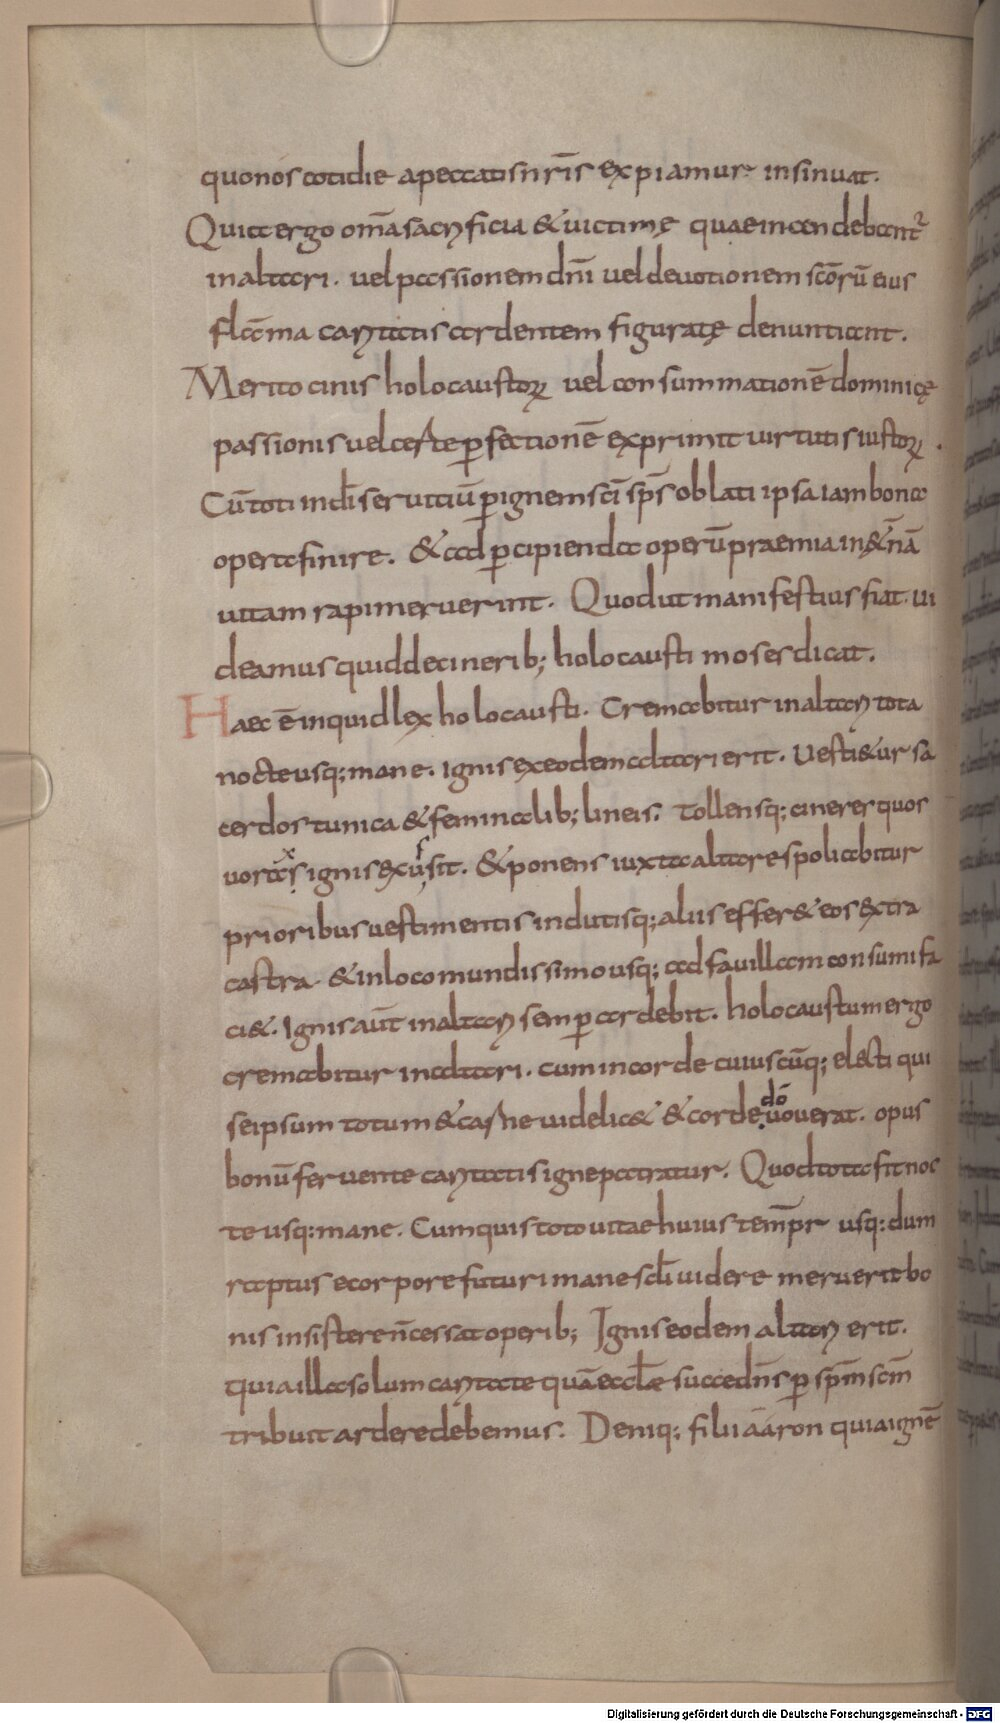 quo nos cotidie a peccatis nr̄is expiamur insinuat.
Quia ergo om̄a sacrificia & uictimę quae incendebant᷑
in altari. uel passionem dn̄i uel deuotionem sc̄orū eius
flāma caritatis ardentem figuratę denuntiant.
Merito cinis holocaustoꝝ uel consummationē dominicę
passionis uel certe ꝑfectionē exprimit uirtutis iustoꝝ.
Cū toti in dī seruitiū ꝑ ignem sc̄i sp̄s oblati ipsa iam bona
opera finire. & ad ꝑcipienda operū praemia in &̄nā
uitam rapi meruerint. Quod ut manifestius fiat. ui
deamus quid de cinerib; holocausti moses dicat.
Haec ē inquid lex holocausti. Cremabitur in altari tota
nocte usq; mane. ignis ex eodem altari erit. Uesti&ur sa
cerdos tunica & feminalib; lineis. Tollensq; cineres quos
uorāxs ignis excusit. & ponens iuxta altare spoliabitur
prioribus uestimentis indutisq; aliis effer& eos extra
castra. & in loco mundissimo usq; ad fauillam consumi fa
ci&. Ignis aūt in altari semꝑ ardebit. holocaustum ergo
cremabitur in altari. cum in corde cuiuscūq; electi qui
se ipsum totum & carne uidelic& & corde dō uouerat. opus
bonū feruente caritatis igne patratur. Quod tota fit noc
te usq: mane. Cum quis toto uitae huius temp̄r usq: dum
raptus e corpore futuri mane sc̄li uidere meruerit bo
nis insistere n̄ cessat operib; Ignis eodem altari erit.
quia illa solum caritate quā ecclæ succedn̄s ꝑ sp̄m sc̄m
tribuit ardere debemus. Deniq; filii aaron qui a ignē
Digitalisierung gefördert durch die Deutsche Forschungsgemeinschaft - DFG